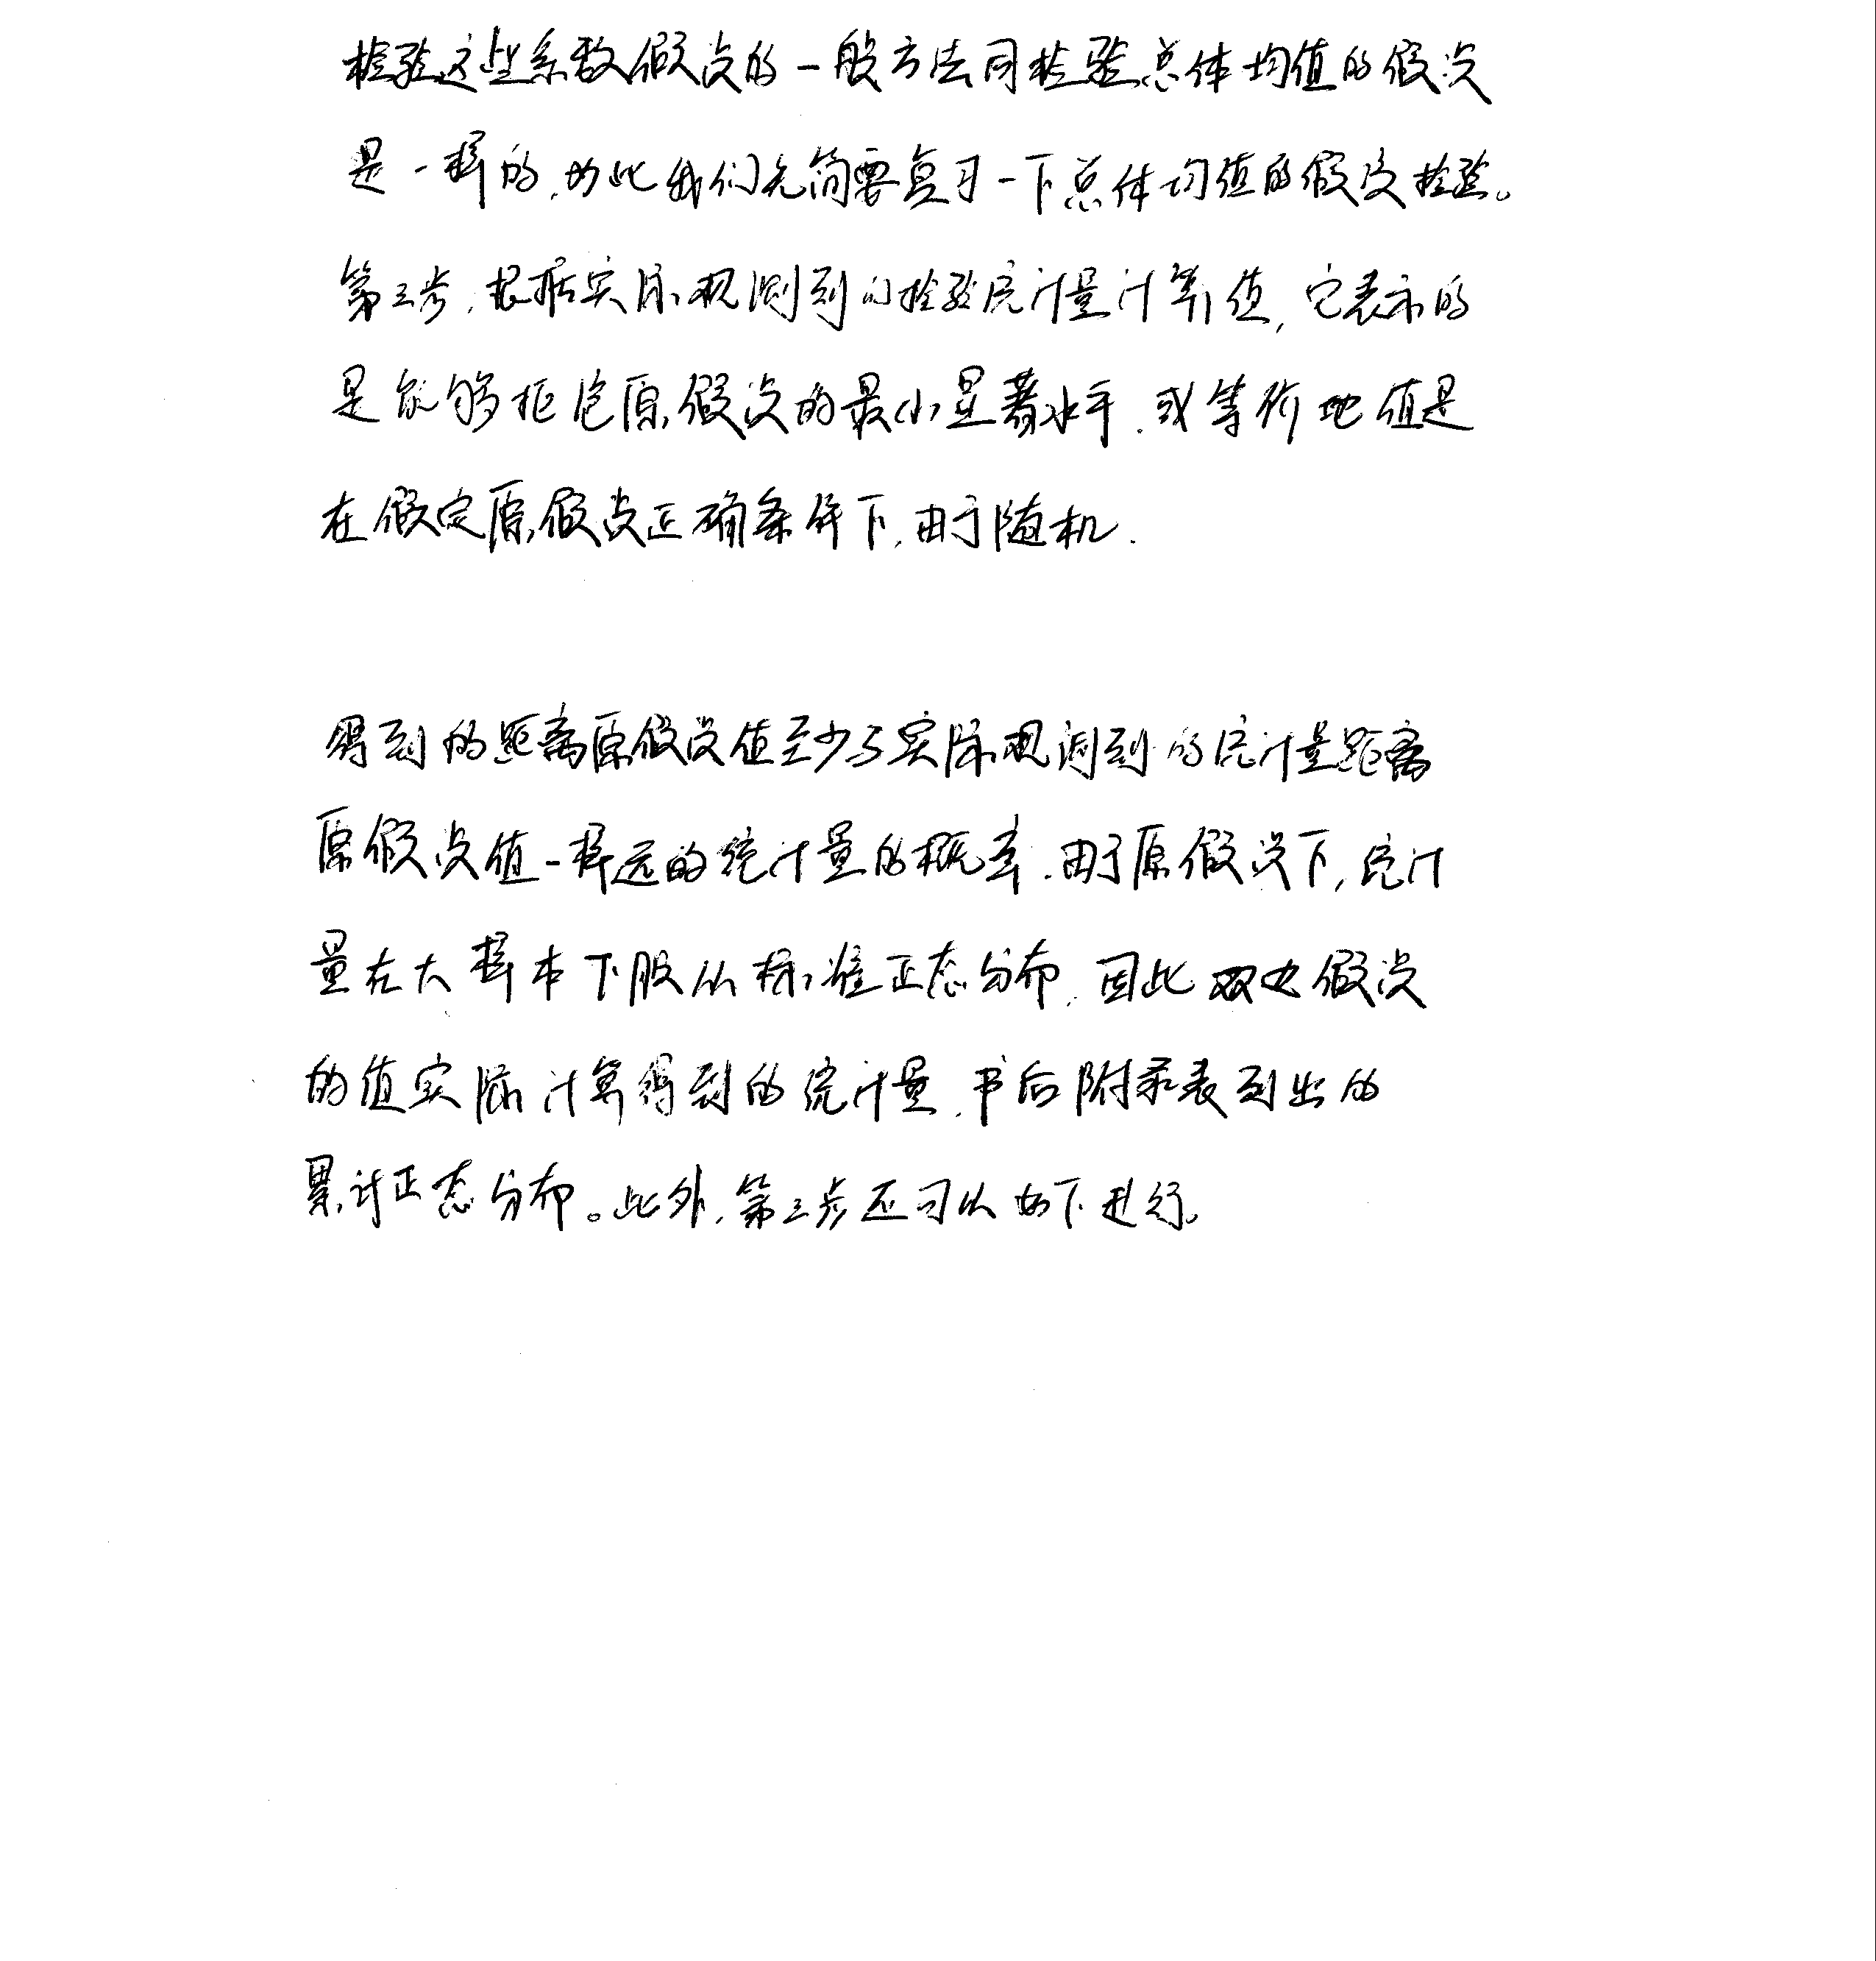 检验这些系数假设的一般方法同检验总体均值的假设
是一样的,为此我们先简要复习一下总体均值的假设检验。
第三步,根据实际观测到的检验统计量计算值,它表示的
是能够拒绝原假设的最小显著水平.或等价地值是
在假定原假设正确条件下,由于随机.
得到的距离原假设值至少与实际观测到的统计量距离
原假设值一样远的统计量的概率.由于原假设下,统计
量在大样本下服从标准正态分布,因此双边假设
的值实际计算得到的统计量,书后附录表列出的
累计正态分布。此外,第三步还可以如下进行。